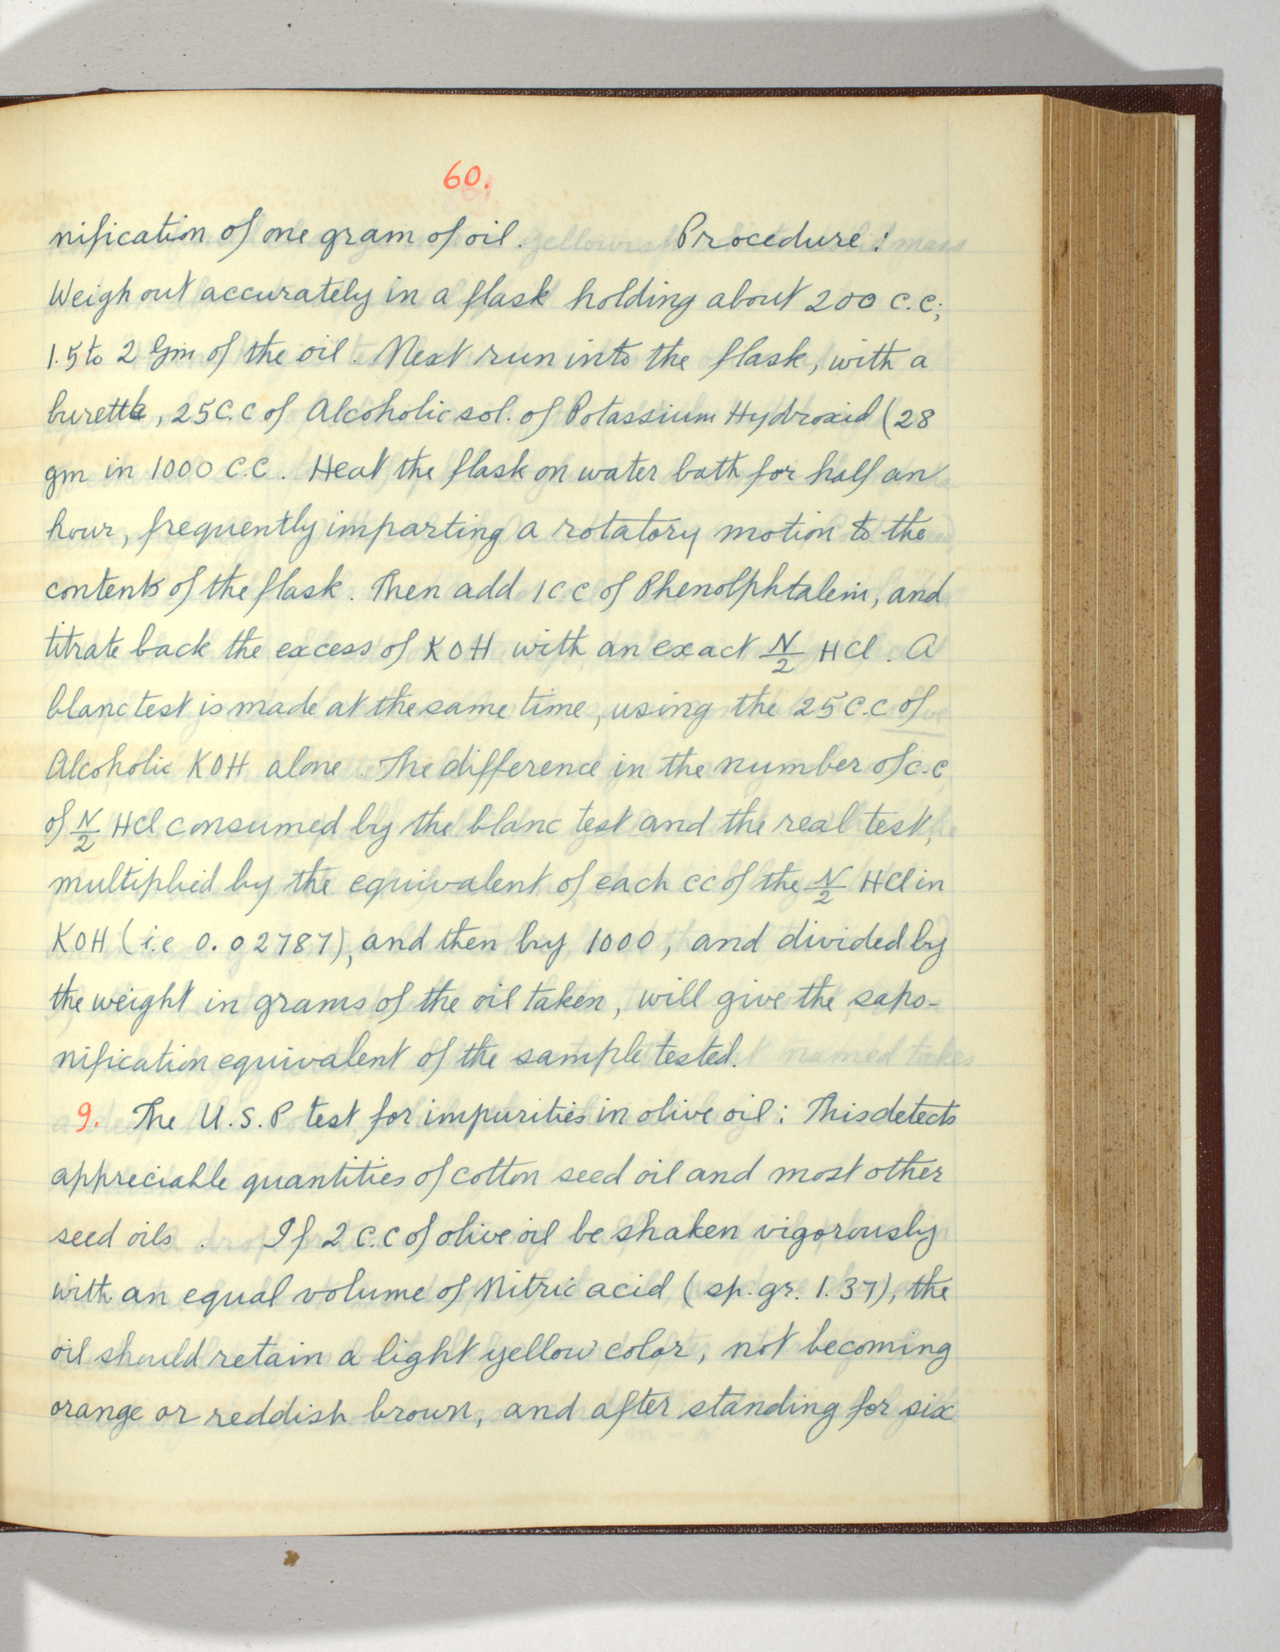 60.
nification of one gram of oil. Procedure:
Weigh out accurately in a flask holding about 200 c.c;
1.5 to 2 Gm of the oil. Next run into the flask, with a
burette, 25 C.C of Alcoholic sol. of Potassium Hydroxid (28
gm in 1000 C.C. Heat the flask on water bath for half an
hour, frequently imparting a rotatory motion to the
contents of the flask. Then add 1 C C of Phenolphtalein, and
titrate back the excess of KOH with an exact N/2 HCl. A
blanc test is made at the same time, using the 25 C.C of
Alcoholic KOH alone. The difference in the number of c.c
of N/2 HCl consumed by the blanc test and the real test,
multiplied by the equivalent of each cc of the N/2 HCl in
KOH (i.e 0.02787), and then by 1000, and divided by
the weight in grams of the oil taken, will give the sapo-
nification equivalent of the sample tested.
9. The U.S.P test for impurities in olive oil: This detects
appreciable quantities of cotton seed oil and most other
seed oils. If 2 C.C of olive oil be shaken vigorously
with an equal volume of Nitric acid (sp. gr. 1.37), the
oil should retain a light yellow color, not becoming
orange or reddish brown, and after standing for six